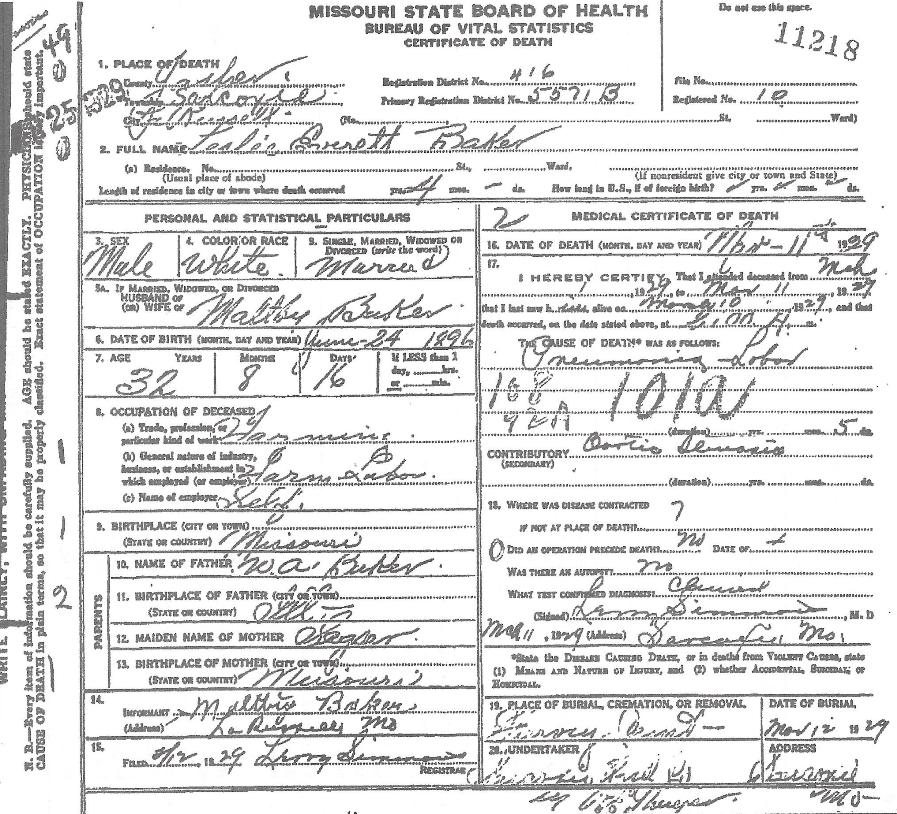 MISSOURI STATE BOARD OF HEALTH
BUREAU OF VITAL STATISTICS
CERTIFICATE OF DEATH
Do not use this space.
11218
1. PLACE OF DEATH
County Jasper
Registration District No. 416
File No.
Township
Primary Registration District No. 5571B
Registered No. 10
City La Russell (No. St. Ward)
2. FULL NAME Leslie Everett Baker
(a) Residence. No. St., Ward.
(Usual place of abode) (If nonresident give city or town and State)
Length of residence in city or town where death occurred yrs. 4 mos. - ds. How long in U.S., if of foreign birth? yrs. mos. ds.
PERSONAL AND STATISTICAL PARTICULARS
3. SEX Male
4. COLOR OR RACE White
5. SINGLE, MARRIED, WIDOWED OR DIVORCED (write the word) Married
5A. IF MARRIED, WIDOWED, OR DIVORCED
HUSBAND OF
(OR) WIFE OF Maltby Baker
6. DATE OF BIRTH (MONTH, DAY AND YEAR) June 24 1896
7. AGE YEARS MONTHS DAYS If LESS than 1
day, hrs.
or min.
32 8 16
8. OCCUPATION OF DECEASED
(a) Trade, profession, or
particular kind of work Farming
(b) General nature of industry,
business, or establishment in
which employed (or employer) Farm Labor
(c) Name of employer Self
9. BIRTHPLACE (CITY OR TOWN)
(STATE OR COUNTRY) Missouri
PARENTS
10. NAME OF FATHER W. A. Baker
11. BIRTHPLACE OF FATHER (CITY OR TOWN)
(STATE OR COUNTRY)
12. MAIDEN NAME OF MOTHER
13. BIRTHPLACE OF MOTHER (CITY OR TOWN)
(STATE OR COUNTRY) Missouri
14.
INFORMANT Maltbie Baker
(Address) La Russell Mo
15.
FILED 3/12, 1929 Leroy Simmons
REGISTRAR
2 MEDICAL CERTIFICATE OF DEATH
16. DATE OF DEATH (MONTH, DAY AND YEAR) Mar - 11 1929
17.
I HEREBY CERTIFY, That I attended deceased from Mch
, 1929, to Mar 11, 1929
that I last saw h alive on 10, 1929, and that
death occurred, on the date stated above, at m.
THE CAUSE OF DEATH* WAS AS FOLLOWS:
Pneumonia Lobar
101a
(duration) yrs. mos. 5 ds.
CONTRIBUTORY
(SECONDARY)
(duration) yrs. mos. ds.
18. WHERE WAS DISEASE CONTRACTED ?
IF NOT AT PLACE OF DEATH?
DID AN OPERATION PRECEDE DEATH? no DATE OF
WAS THERE AN AUTOPSY? no
WHAT TEST CONFIRMED DIAGNOSIS?
(Signed) Leroy Simmons, M. D
Mch 11, 1929 (Address) Sarcoxie, Mo.
*State the DISEASE CAUSING DEATH, or in deaths from VIOLENT CAUSES, state
(1) MEANS AND NATURE OF INJURY, and (2) whether ACCIDENTAL, SUICIDAL, or
HOMICIDAL.
19. PLACE OF BURIAL, CREMATION, OR REMOVAL
DATE OF BURIAL
Mar 12 1929
20. UNDERTAKER
ADDRESS
Sarcoxie
Mo
N. B.—Every item of information should be carefully supplied. AGE should be stated EXACTLY. PHYSICIANS should state
CAUSE OF DEATH in plain terms, so that it may be properly classified. Exact statement of OCCUPATION is very important.